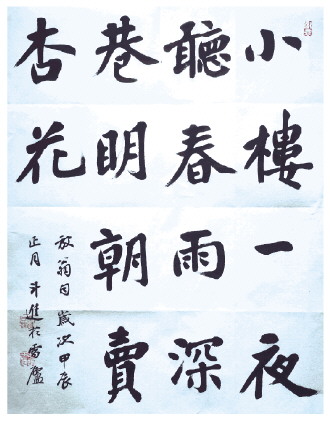 小樓一夜
聽春雨深
巷明朝賣
杏花
放翁句歲次甲辰
正月斗進於廬